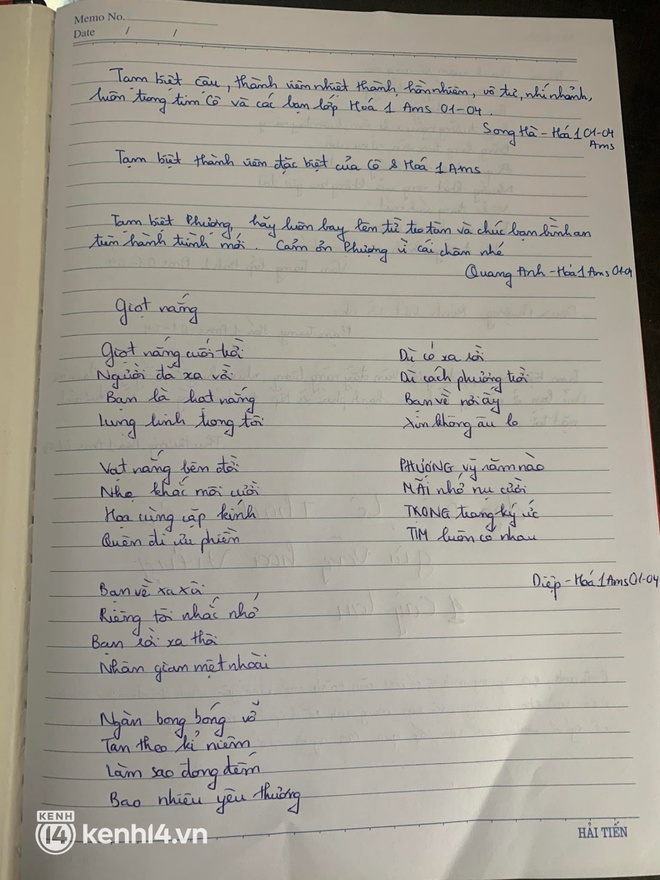 Memo No.
Date / /
Tạm biệt cậu, thành viên nhiệt thành, hồn nhiên, vô tư, nhí nhảnh,
luôn trong tim Cô và các bạn lớp Hoá 1 Ams 01-04.
Song Hà - Hoá 1 01-04
Ams
Tạm biệt thành viên đặc biệt của Cô & Hoá 1 Ams
Tạm biệt Phương, hãy luôn bay lên từ tro tàn và chúc bạn bình an
trên hành trình mới. Cảm ơn Phượng vì cái chăm nhé
Quang Anh - Hoá 1 Ams 01-04
Giọt nắng
Giọt nắng cuối trời
Người đã xa vời
Bạn là hạt nắng
Lung linh trong tôi
Vạt nắng bên đồi
Nhẹ khắc môi cười
Họa cùng cặp kính
Quên đi ưu phiền
Bạn về xa xôi
Riêng tôi nhắc nhớ
Bạn rời xa thôi
Nhân gian mệt nhoài
Ngàn bong bóng vỡ
Tan theo kỉ niệm
Làm sao đong đếm
Bao nhiêu yêu thương
Dù có xa rồi
Dù cách phương trời
Bạn về nơi ấy
Xin không âu lo
PHƯỢNG vỹ năm nào
MÃI nhớ nụ cười
TRONG trang ký ức
TIM luôn có nhau
Diệp - Hoá 1 Ams 01-04
KENH
14 kenh14.vn
HẢI TIẾN